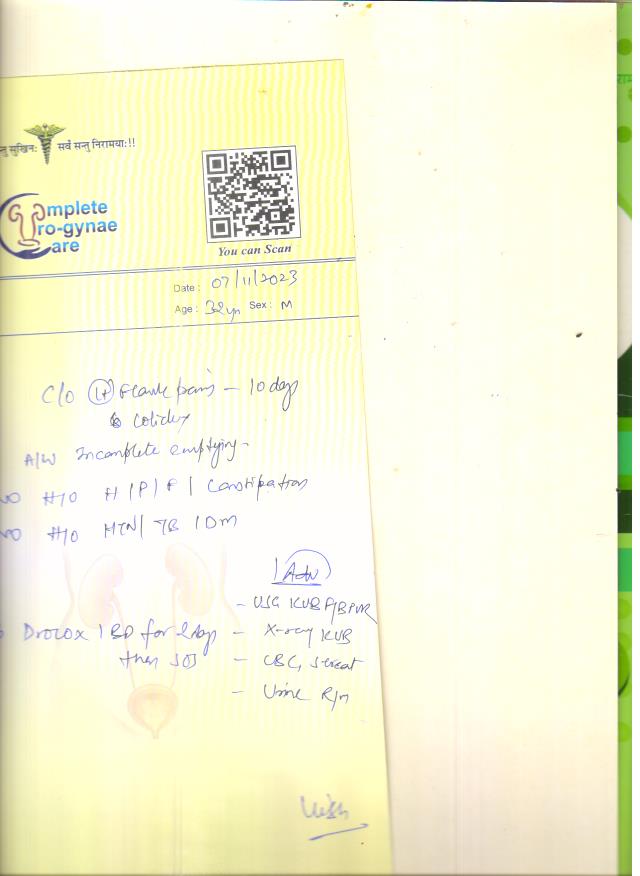 सुखिनः सर्वे सन्तु निरामयाः!!
Complete
Uro-gynae
Care
You can Scan
Date: 07/11/2023
Age: 32yr Sex: M
C/O Lt Flank pain - 10 days
Colicky
A/W Incomplete emptying -
NO H/O H/P/F/ Constipation
NO H/O HTN/ TB /DM
Adv
- USG KUBP/PVR
Drotox 1 BD for 2 days - X-ray KUB
then SOS - CBC, S.creat
- Urine R/M